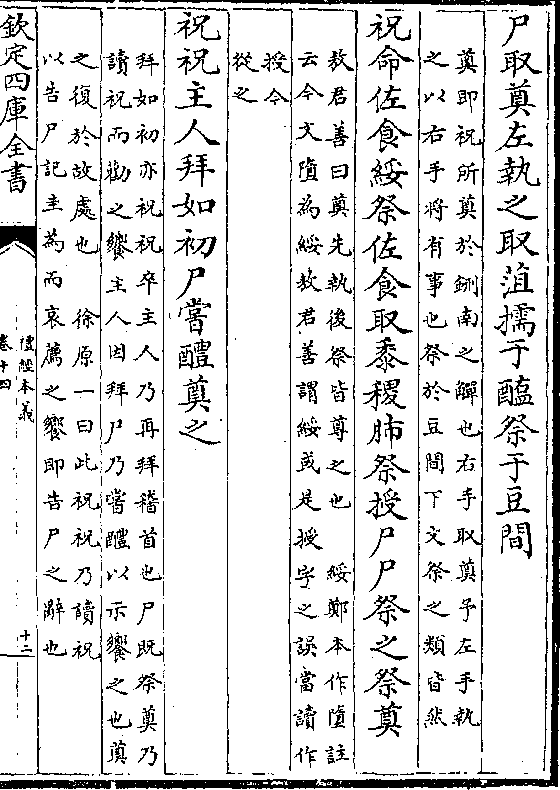 尸取奠左執之取菹擩于醢祭于豆間
奠即祝所奠於鉶南之觶也右手取奠予左手執
之以右手將有事也祭於豆間下文祭之類皆然
祝命佐食綏祭佐食取黍稷肺祭授尸尸祭之祭奠
敖君善曰奠先執後祭皆尊之也　綏鄭本作墮註
云今文墮為綏敖君善謂綏或是授字之誤當讀作
授今
從之
祝祝主人拜如初尸嘗醴奠之
拜如初亦祝祝卒主人乃再拜稽首也尸既祭奠乃
讀祝而勸之饗主人因拜尸乃嘗醴以示饗之也奠
之復於故處也　徐原一曰此祝祝乃讀祝
以告尸記圭為而哀薦之饗即告尸之辭也
欽定四庫全書
禮經本義
卷十四
十二